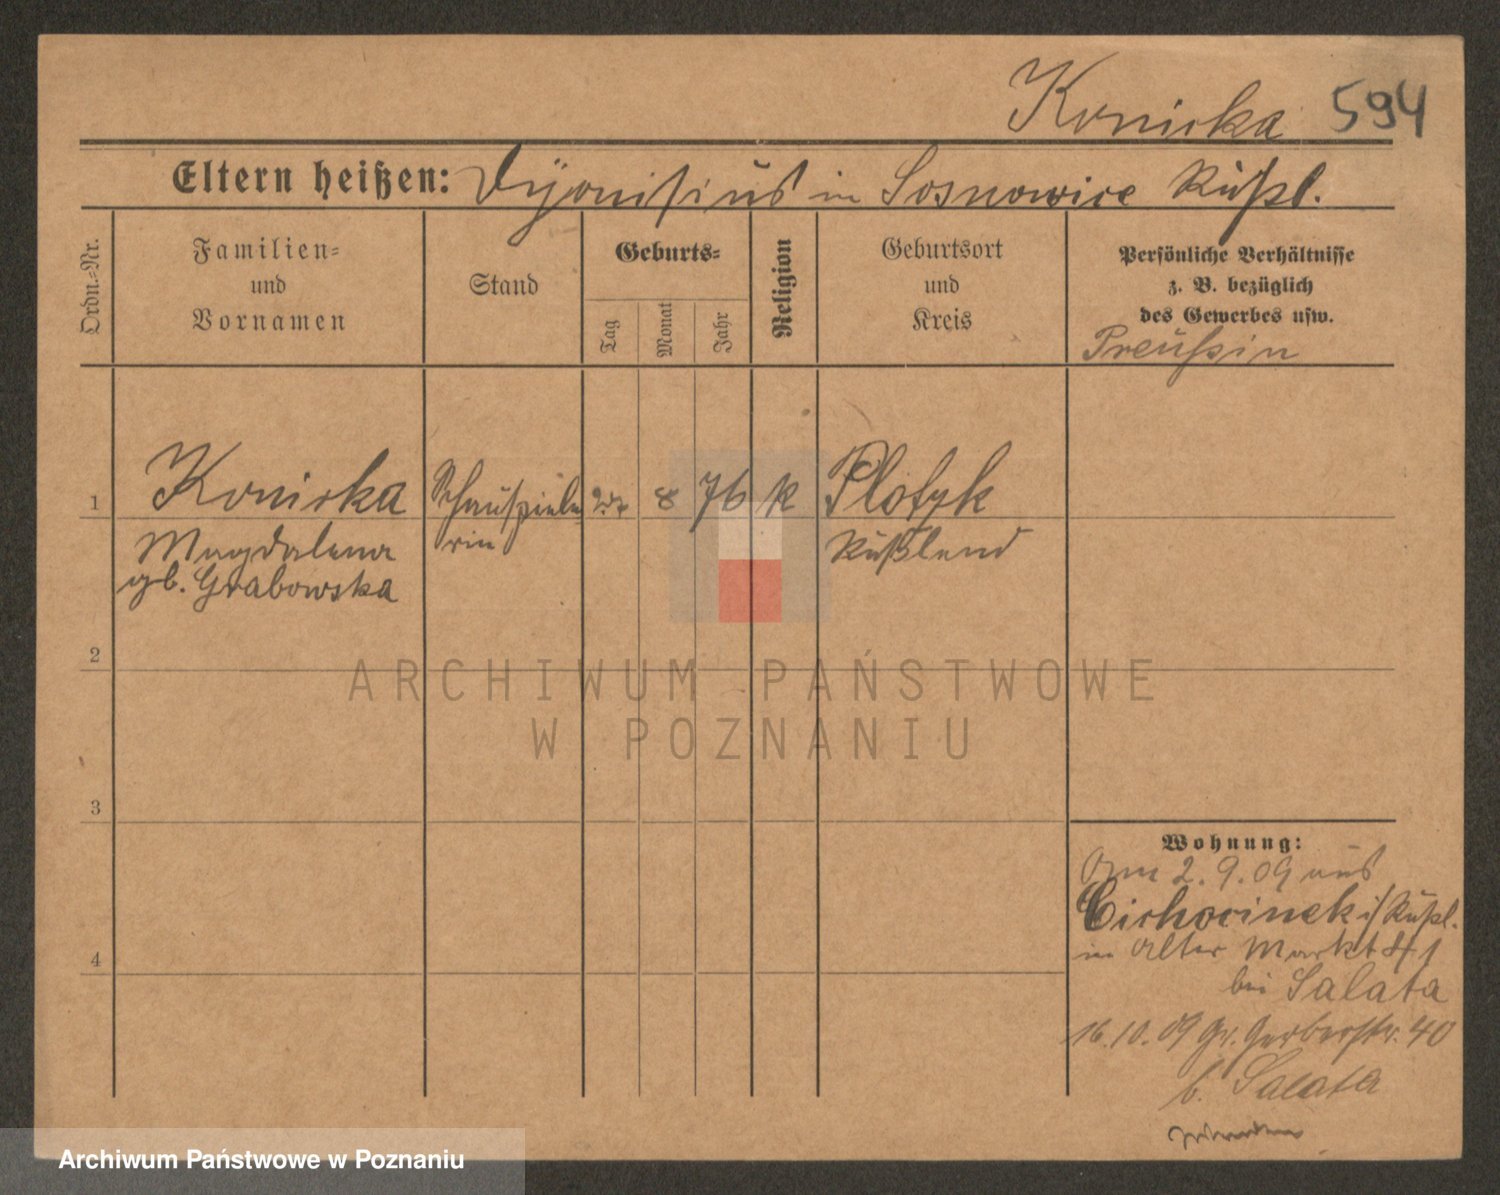 Konicka 594
Eltern heißen: Dyonisius in Sosnowice Rußl.
Ordn.=Nr.
Familien=
und
Vornamen
Stand
Geburts=
Tag
Monat
Jahr
Religion
Geburtsort
und
Kreis
Persönliche Verhältnisse
z. B. bezüglich
des Gewerbes usw.
Preußin
1 Konicka Schauspiele 8 76 k Plotzk
Magdalena rin Rußland
gb. Grabowska
2
3
4
Wohnung:
2.9.09 aus
Cichocinek i/Rußl.
in Alter Markt 41
bei Salata
16.10.09 Gr. Gerberstr. 40
b. Salata
ARCHIWUM PAŃSTWOWE
W POZNANIU
Archiwum Państwowe w Poznaniu